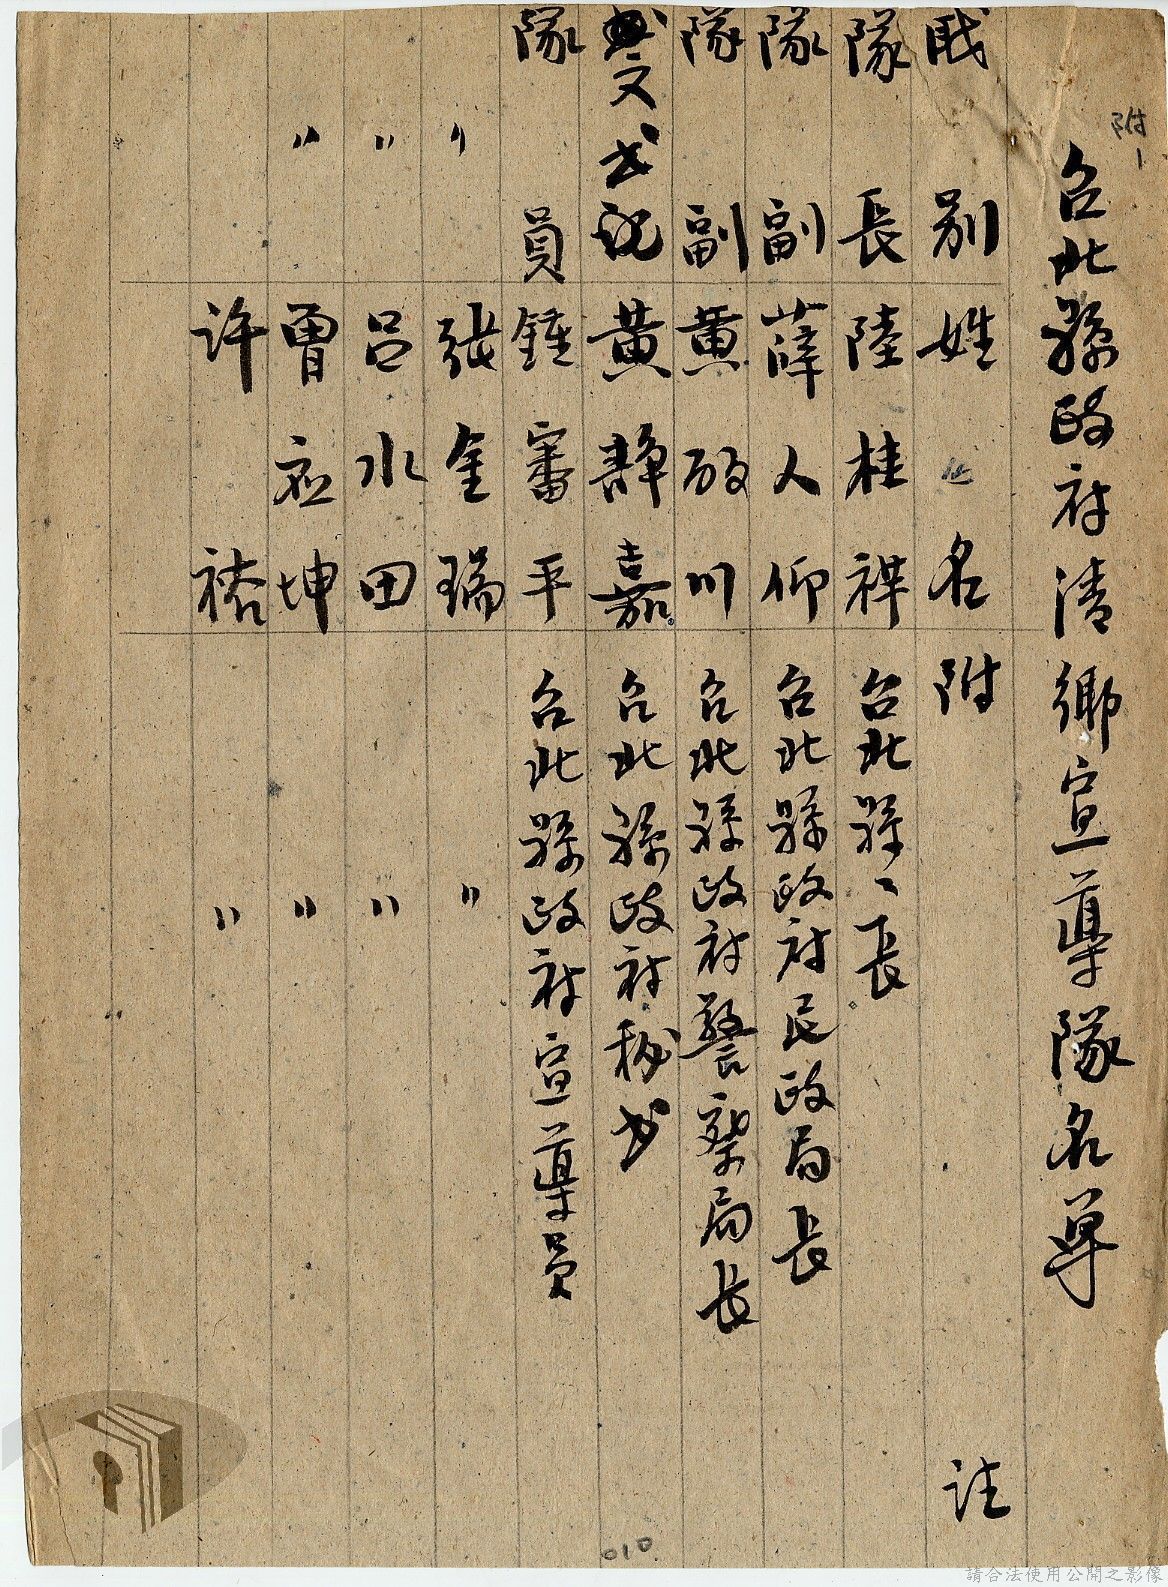 附1
台北縣政府清鄉宣導隊名單
职別 姓名 附註
隊長 陸桂祥 台北縣〻長
隊副 薛人仰 台北縣政府民政局長
隊副 黃 川 台北縣政府警察局長
文书記 黃静嘉 台北縣政府秘书
隊員 鍾審平 台北縣政府宣導員
〃 張金瑞 〃
〃 呂水田 〃
〃 曾应坤 〃
许祐 〃
010
請合法使用公開之影像